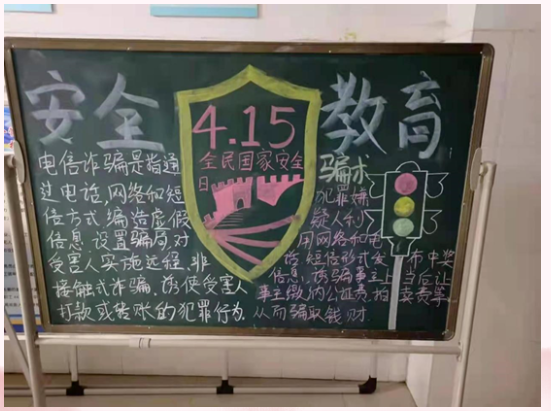 安全教育
4.15
全民国家安全
日
电信诈骗是指通
过电话,网络和短
信方式,编造虚假
信息,设置骗局,对
受害人实施远程、非
接触式诈骗,诱使受害人
打款或转账的犯罪行为
骗术
犯罪嫌
疑人利
用网络和电
话 短信形式发 布中奖
信息,诱骗事主上当后让
事主缴纳公证费,拍卖费等
从而骗取钱财.